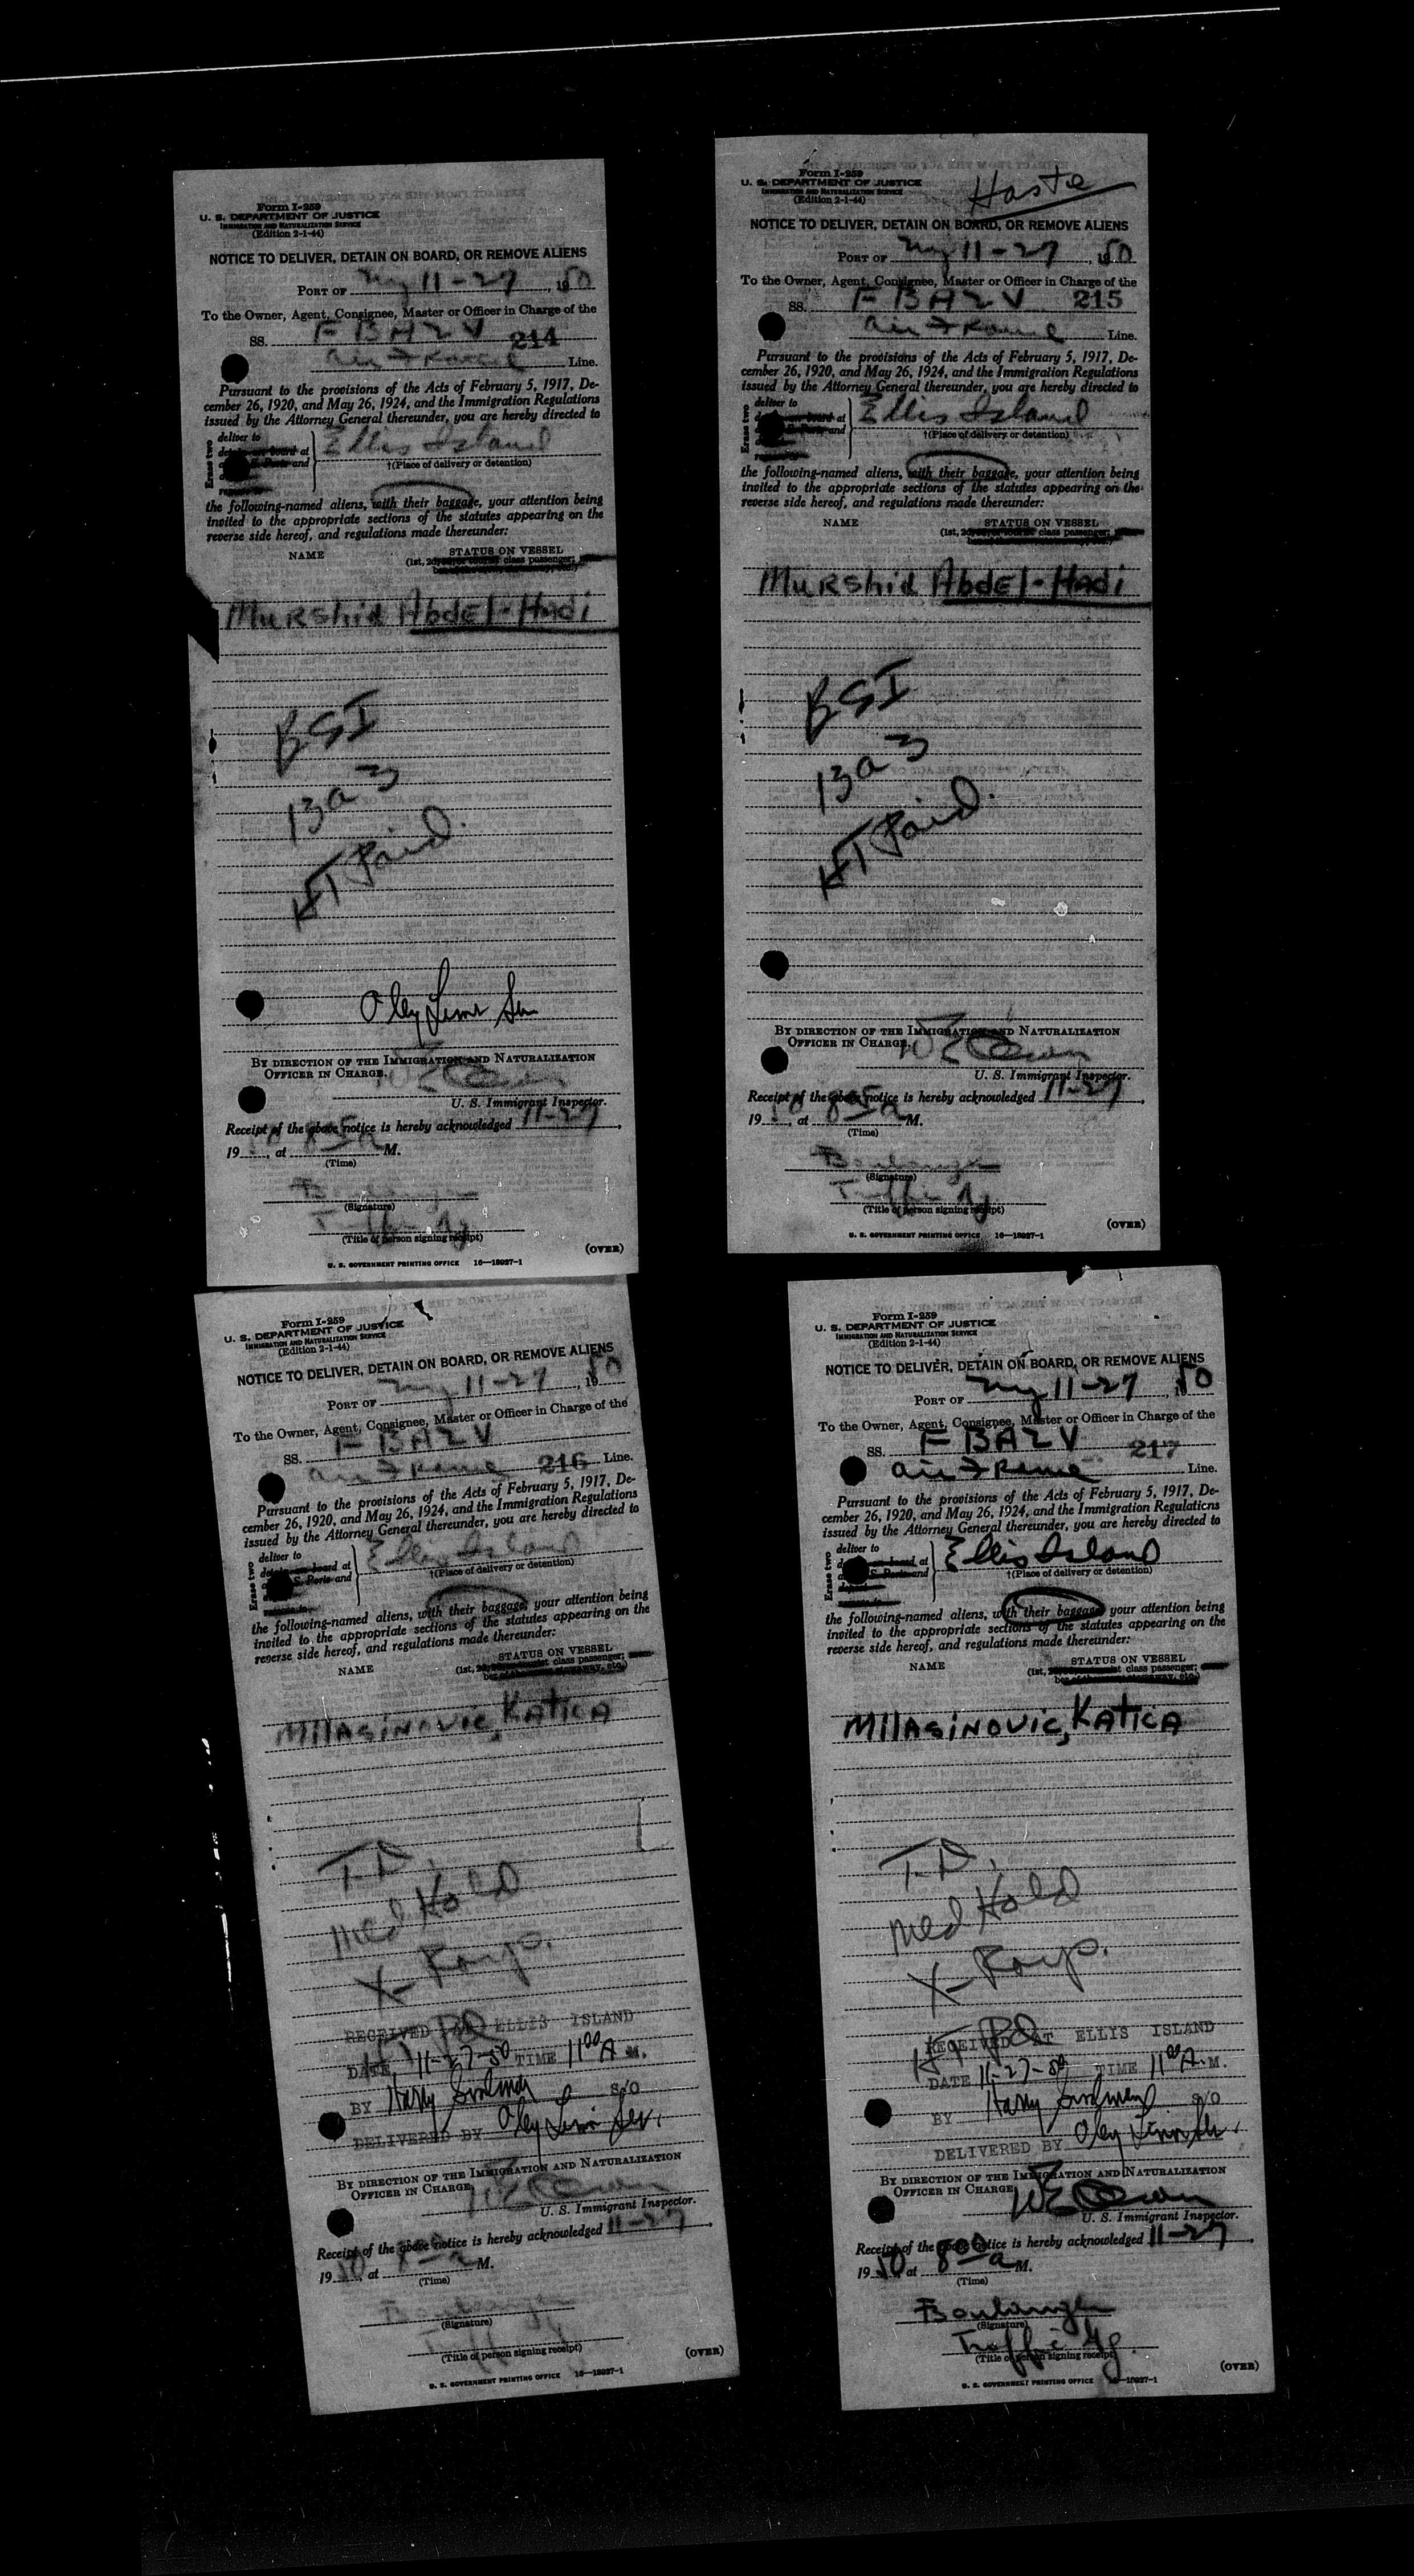 Form I-259
U. S. DEPARTMENT OF JUSTICE
IMMIGRATION AND NATURALIZATION SERVICE
(Edition 2-1-44)
NOTICE TO DELIVER, DETAIN ON BOARD, OR REMOVE ALIENS
PORT OF NY 11-27, 1950
To the Owner, Agent, Consignee, Master or Officer in Charge of the
SS. F BAZV 214
Air France Line.
Pursuant to the provisions of the Acts of February 5, 1917, De-
cember 26, 1920, and May 26, 1924, and the Immigration Regulations
issued by the Attorney General thereunder, you are hereby directed to
Erase two
deliver to
at
and
Ellis Island
†(Place of delivery or detention)
the following-named aliens, with their baggage, your attention being
invited to the appropriate sections of the statutes appearing on the
reverse side hereof, and regulations made thereunder:
NAME STATUS ON VESSEL
(1st, 2d class passenger;
Murshid Abdel-Hadi
BSI
13a3
HT Paid.
BY DIRECTION OF THE IMMIGRATION AND NATURALIZATION
OFFICER IN CHARGE.
U. S. Immigrant Inspector.
Receipt of the above notice is hereby acknowledged 11-27,
19, at M.
(Time)
(Signature)
(Title of person signing receipt)
(OVER)
U. S. GOVERNMENT PRINTING OFFICE 16—18027-1
Form I-259
Haste
U. S. DEPARTMENT OF JUSTICE
IMMIGRATION AND NATURALIZATION SERVICE
(Edition 2-1-44)
NOTICE TO DELIVER, DETAIN ON BOARD, OR REMOVE ALIENS
PORT OF NY 11-27, 1950
To the Owner, Agent, Consignee, Master or Officer in Charge of the
SS. F BAZV 215
Air France Line.
Pursuant to the provisions of the Acts of February 5, 1917, De-
cember 26, 1920, and May 26, 1924, and the Immigration Regulations
issued by the Attorney General thereunder, you are hereby directed to
Erase two
deliver to
at
and
Ellis Island
†(Place of delivery or detention)
the following-named aliens, with their baggage, your attention being
invited to the appropriate sections of the statutes appearing on the
reverse side hereof, and regulations made thereunder:
NAME STATUS ON VESSEL
(1st, class passenger;
Murshid Abdel-Hadi
BSI
13a3
HT Paid.
BY DIRECTION OF THE IMMIGRATION AND NATURALIZATION
OFFICER IN CHARGE.
U. S. Immigrant Inspector.
Receipt of the above notice is hereby acknowledged 11-27,
1950, at M.
(Time)
(Signature)
(Title of person signing receipt)
(OVER)
U. S. GOVERNMENT PRINTING OFFICE 16—18027-1
Form I-259
U. S. DEPARTMENT OF JUSTICE
IMMIGRATION AND NATURALIZATION SERVICE
(Edition 2-1-44)
NOTICE TO DELIVER, DETAIN ON BOARD, OR REMOVE ALIENS
PORT OF NY 11-27, 1950
To the Owner, Agent, Consignee, Master or Officer in Charge of the
SS. F BAZV
Air France 216 Line.
Pursuant to the provisions of the Acts of February 5, 1917, De-
cember 26, 1920, and May 26, 1924, and the Immigration Regulations
issued by the Attorney General thereunder, you are hereby directed to
Erase two
deliver to
at
and
Ellis Island
†(Place of delivery or detention)
the following-named aliens, with their baggage, your attention being
invited to the appropriate sections of the statutes appearing on the
reverse side hereof, and regulations made thereunder:
NAME STATUS ON VESSEL
(1st, class passenger;
Milasinovic, Katica
T.D.
Med Hold
X-Rays.
RECEIVED AT ELLIS ISLAND
DATE 11-27-50 TIME 11 00 A.M.
BY Harry S/O
DELIVERED BY
BY DIRECTION OF THE IMMIGRATION AND NATURALIZATION
OFFICER IN CHARGE.
U. S. Immigrant Inspector.
Receipt of the above notice is hereby acknowledged 11-27,
1950, at M.
(Time)
(Signature)
(Title of person signing receipt)
(OVER)
U. S. GOVERNMENT PRINTING OFFICE 16—18027-1
Form I-259
U. S. DEPARTMENT OF JUSTICE
IMMIGRATION AND NATURALIZATION SERVICE
(Edition 2-1-44)
NOTICE TO DELIVER, DETAIN ON BOARD, OR REMOVE ALIENS
PORT OF NY 11-27, 1950
To the Owner, Agent, Consignee, Master or Officer in Charge of the
SS. F BAZV 217
Air France Line.
Pursuant to the provisions of the Acts of February 5, 1917, De-
cember 26, 1920, and May 26, 1924, and the Immigration Regulations
issued by the Attorney General thereunder, you are hereby directed to
Erase two
deliver to
at
and
Ellis Island
†(Place of delivery or detention)
the following-named aliens, with their baggage, your attention being
invited to the appropriate sections of the statutes appearing on the
reverse side hereof, and regulations made thereunder:
NAME STATUS ON VESSEL
(1st, class passenger;
Milasinovic, Katica
T.D.
Med Hold
X-Rays.
RECEIVED AT ELLIS ISLAND
DATE 11-27-50 TIME 11 00 A.M.
BY Harry S/O
DELIVERED BY
BY DIRECTION OF THE IMMIGRATION AND NATURALIZATION
OFFICER IN CHARGE
U. S. Immigrant Inspector.
Receipt of the above notice is hereby acknowledged 11-27,
1950, at 8 00 a M.
(Time)
Boulanger
(Signature)
Traffic Ag
(Title of person signing receipt)
(OVER)
U. S. GOVERNMENT PRINTING OFFICE 16—18027-1